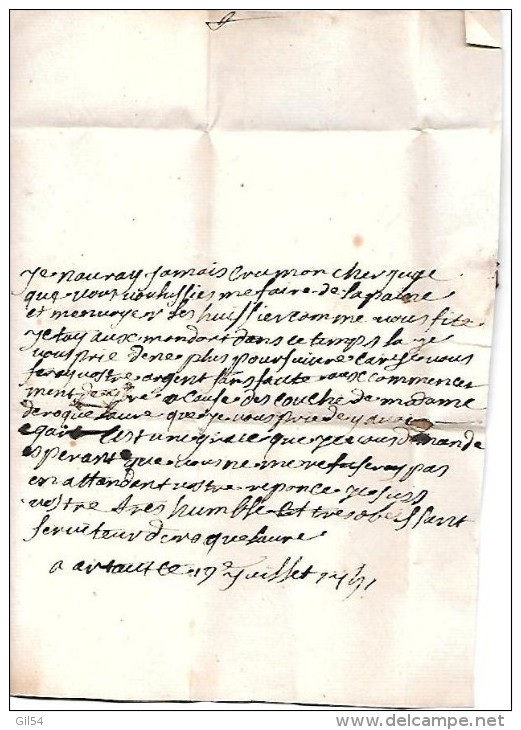 Je nauray Jamais cru mon cher juge
que vous voulussies me faire de la paine
et menvoyer des huissier comme vous fite
jetoy aux mondont dans ce temps la je
vous prie de ne plus poursuivre car je vous
feray vostre argent sans faute aux commence
ment a cause des couche de madame
deroquelaure que je vous prie dy avoir
egart cest une grace que je vous demande
esperant que vous ne me refuseray pas
en attendant vostre reponce je suis
vostre tres humble et tres obeissant
serviteur deroquelaure
a ce 19e Juillet
Gil54
delcampe.net